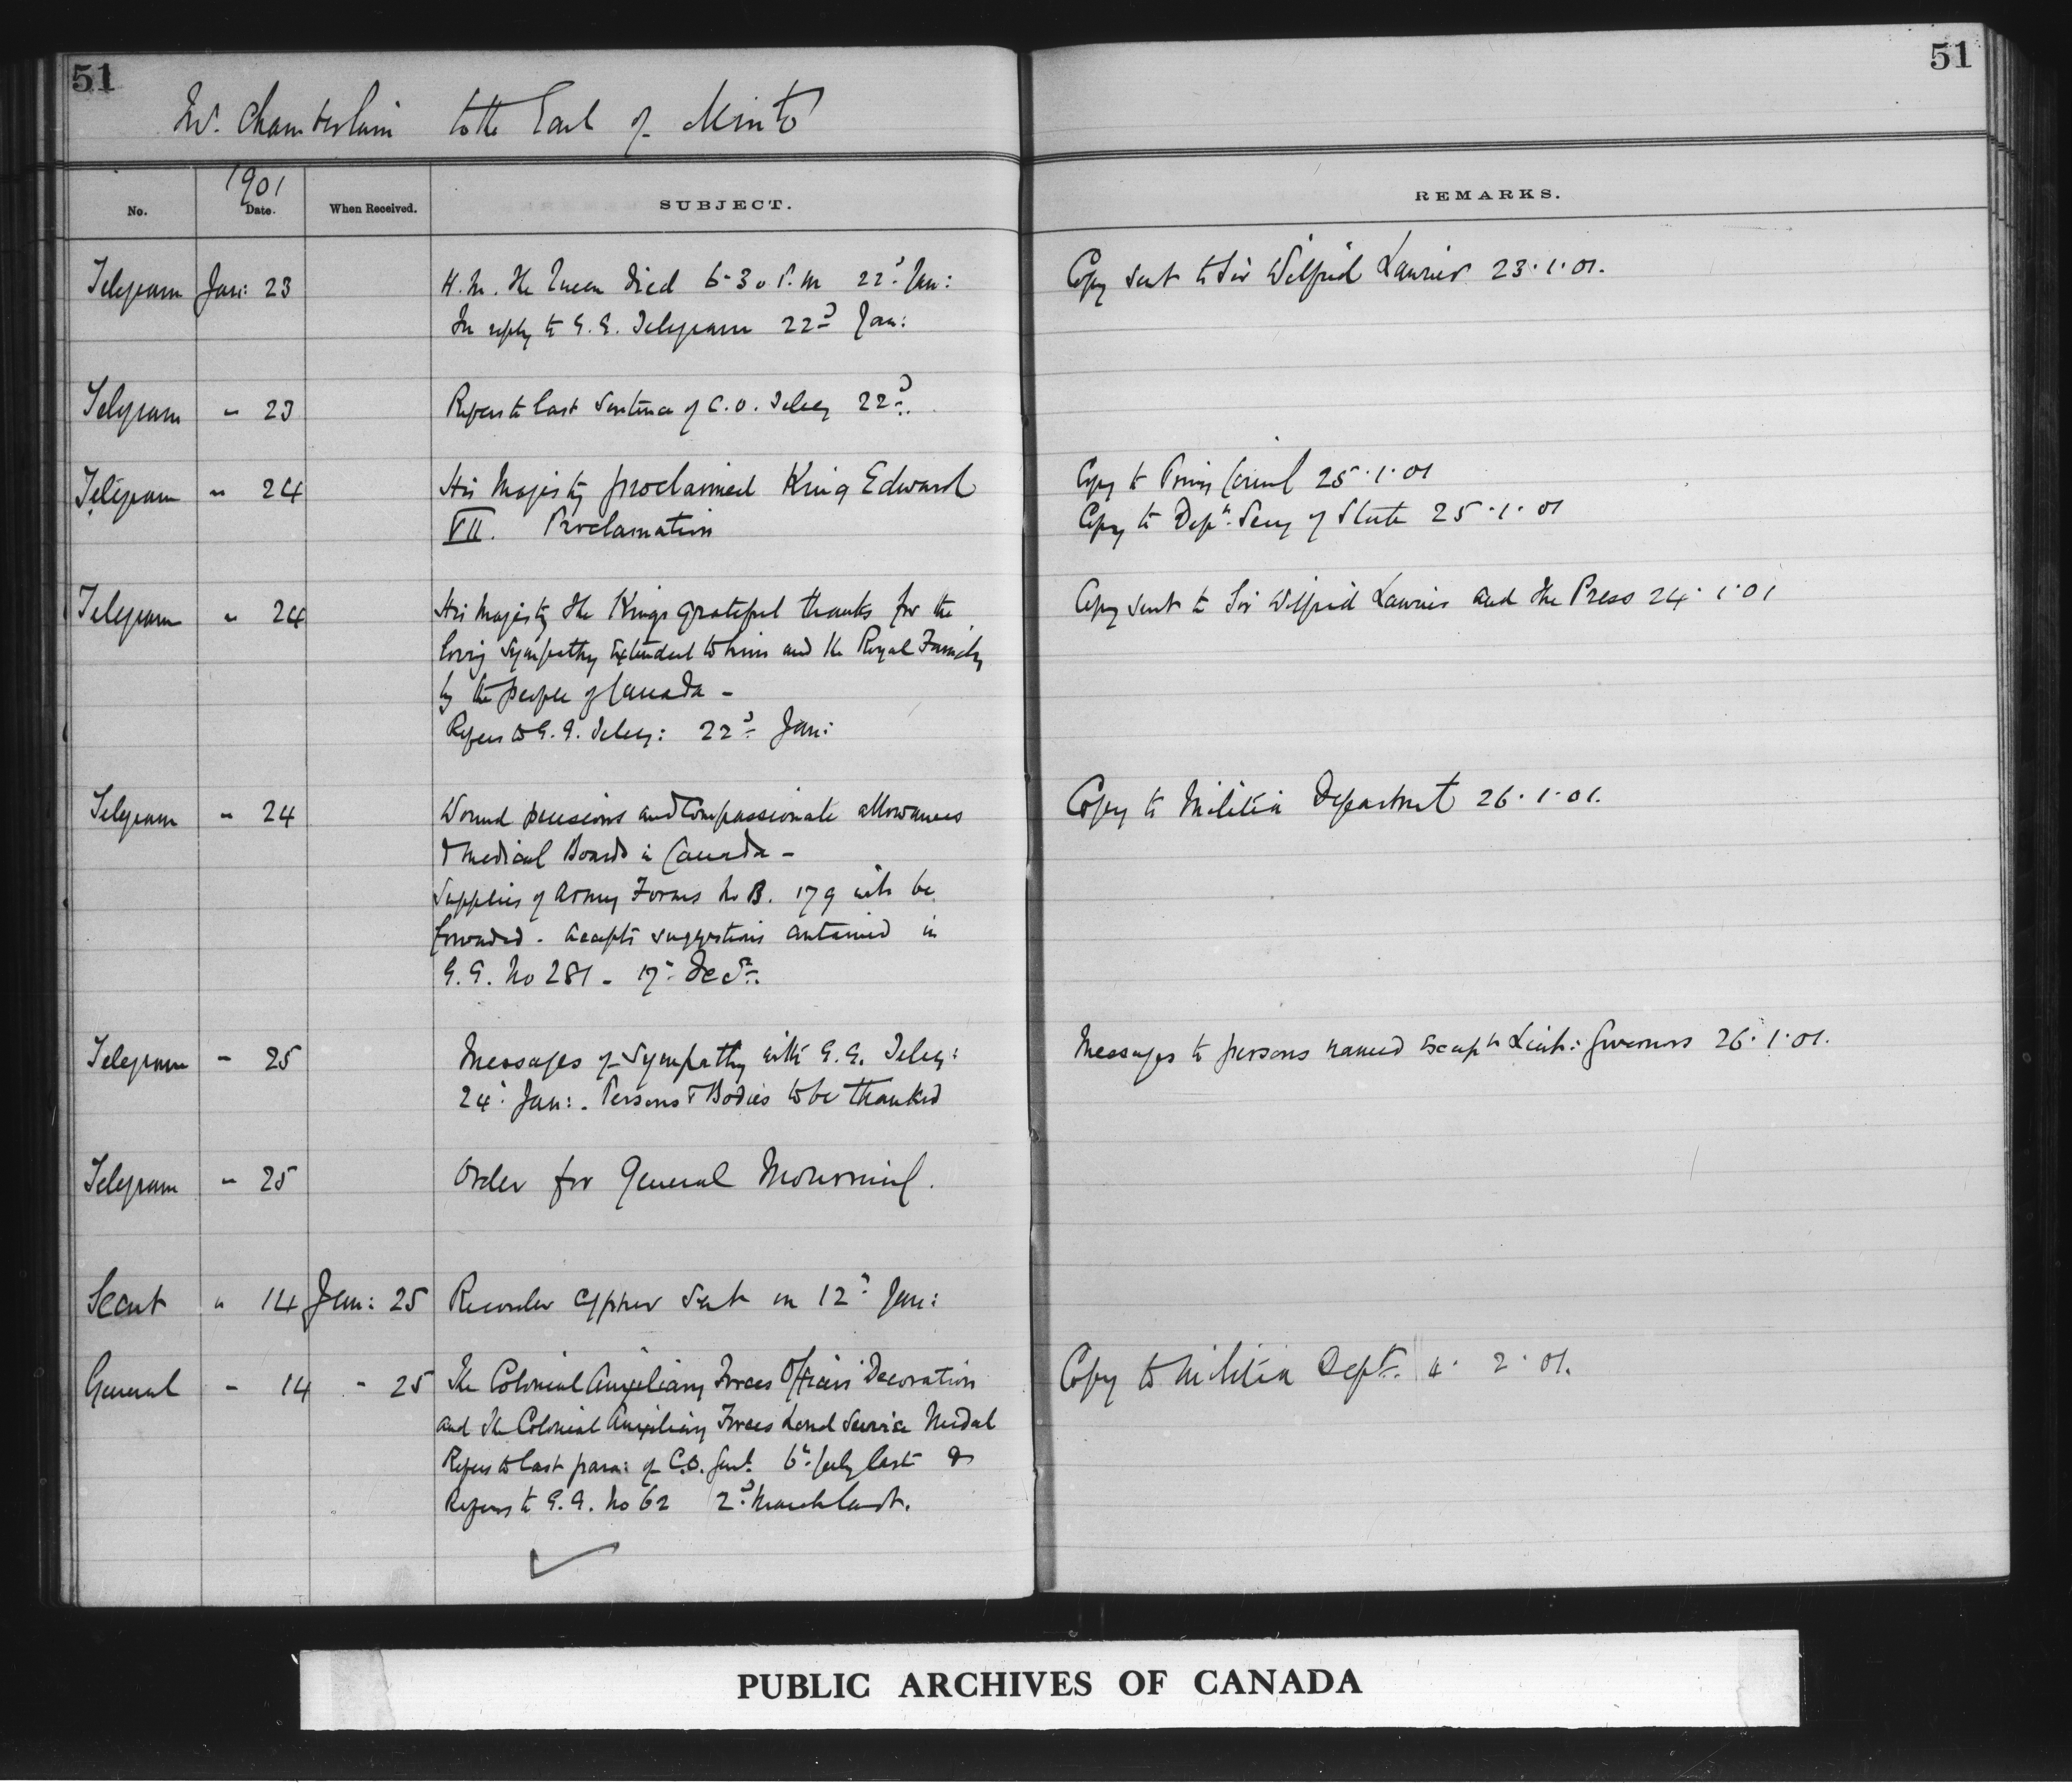 51
51
Mr. Chamberlain to the Earl of Minto
No.
1901
Date.
When Received.
SUBJECT.
REMARKS.
Telegram Jan: 23 H.M. The Queen died 6-30 P.M 22d. Jan: Copy sent to Sir Wilfrid Laurier 23.1.01.
In reply to G.G. Telegram 22d Jan:
Telegram " 23 Refers to last sentence of C.O. Teleg 22d.
Telegram " 24 His Majesty proclaimed King Edward Copy to Privy Council 25.1.01
VII. Proclamation Copy to Depy. Secy of State 25.1.01
Telegram " 24 His Majesty The Kings grateful thanks for the Copy sent to Sir Wilfrid Laurier and the Press 24.1.01
loving sympathy extended to him and the Royal Family
by the people of Canada -
Refers to G.G. Teleg: 22d Jan:
Telegram " 24 Wound pensions and Compassionate allowances Copy to Militia Department 26.1.01.
& Medical Boards in Canada -
Supplies of Army Forms No B. 179 will be
forwarded. Accepts suggestions contained in
G.G. No 281 - 17th Decr.
Telegram " 25 Messages of Sympathy with G.G. Teleg: Messages to persons named except Lieut: Governors 26.1.01.
24th Jan: . Persons & Bodies to be thanked
Telegram " 25 Order for General Mourning.
Secret " 14 Jan: 25 Recorder cypher sent on 12th Jan:
General " 14 " 25 The Colonial Auxiliary Forces Officers' Decoration Copy to Militia Dept. 4. 2. 01.
and The Colonial Auxiliary Forces Long Service Medal
Refers to last para: of C.O. Genl. 6th July last &
Refers to G.G. No 62 2d March last.
PUBLIC ARCHIVES OF CANADA